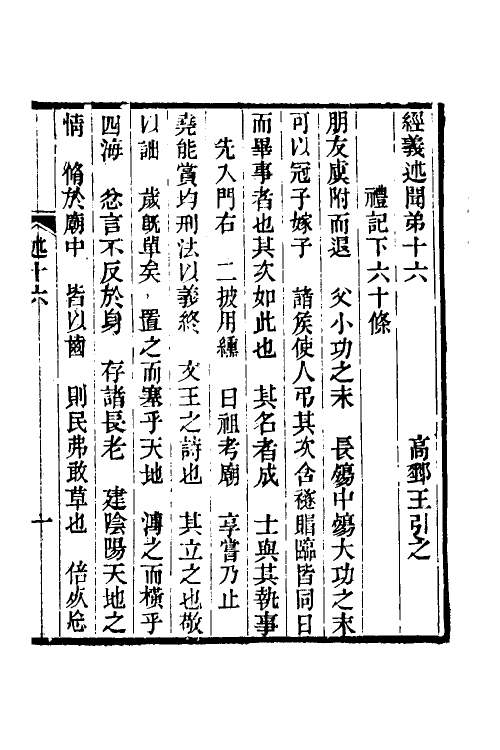 經義述聞弟十六　高郵王引之
禮記下六十條
朋友虞附而退　父小功之末　長殤中殤大功之末
可以冠子嫁子　諸矦使人弔其次含襚賵臨皆同日
而畢事者也其次如此也　其名者成　士與其執事
先入門右　二披用纁　曰祖考廟　享嘗乃止
堯能賞均刑法以義終　文王之詩也　其立之也敬
以詘　歲旣單矣　置之而塞乎天地　溥之而橫乎
四海　忿言不反於身　存諸長老　建陰陽天地之
情　脩於廟中　皆以齒　則民弗敢草也　倍死忘
述十六
一